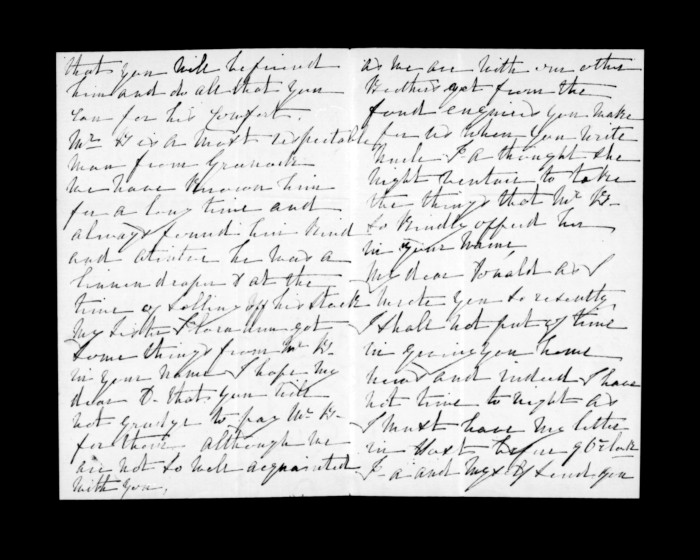 that you will befriend
him and do all that you
can for his comfort.
Mr B is a most respectable
man from Greenock
we have known him
for a long time and
always found him kind
and he was a
linnen draper & at the
time of selling off his stock
My Sister got
some things from Mr B.
in your name I hope my
dear D. that you will
not grudge to pay Mr B.
for them although we
are not so well acquainted
with you,
as we are with our other
Brothers yet from the
fond enquiries you make
for us when you write
Uncle thought she
might venture to take
the things that Mr B.
so kindly offered her
in your name,
My dear Donald as I
wrote you so recently
I shall not put off time
in giving you home
news and indeed I have
not time to night as
I must have my letter
in before 9 O'clock
and send you